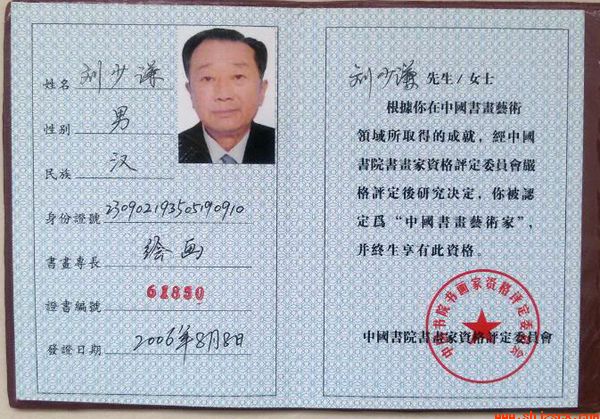 姓名 刘少谦
性别 男
民族 汉
身份證號 230902193505190910
書畫專長 绘画
證書編號 61850
發證日期 2006年8月8日
刘少谦 先生/女士
根據你在中國書畫藝術
領域所取得的成就，經中國
書院書畫家資格評定委員會嚴
格評定後研究決定，你被認
定爲“中國書畫藝術家”，
并終生享有此資格。
中國書院書畫家資格評定委員會
中国书院书画家资格评定委员会